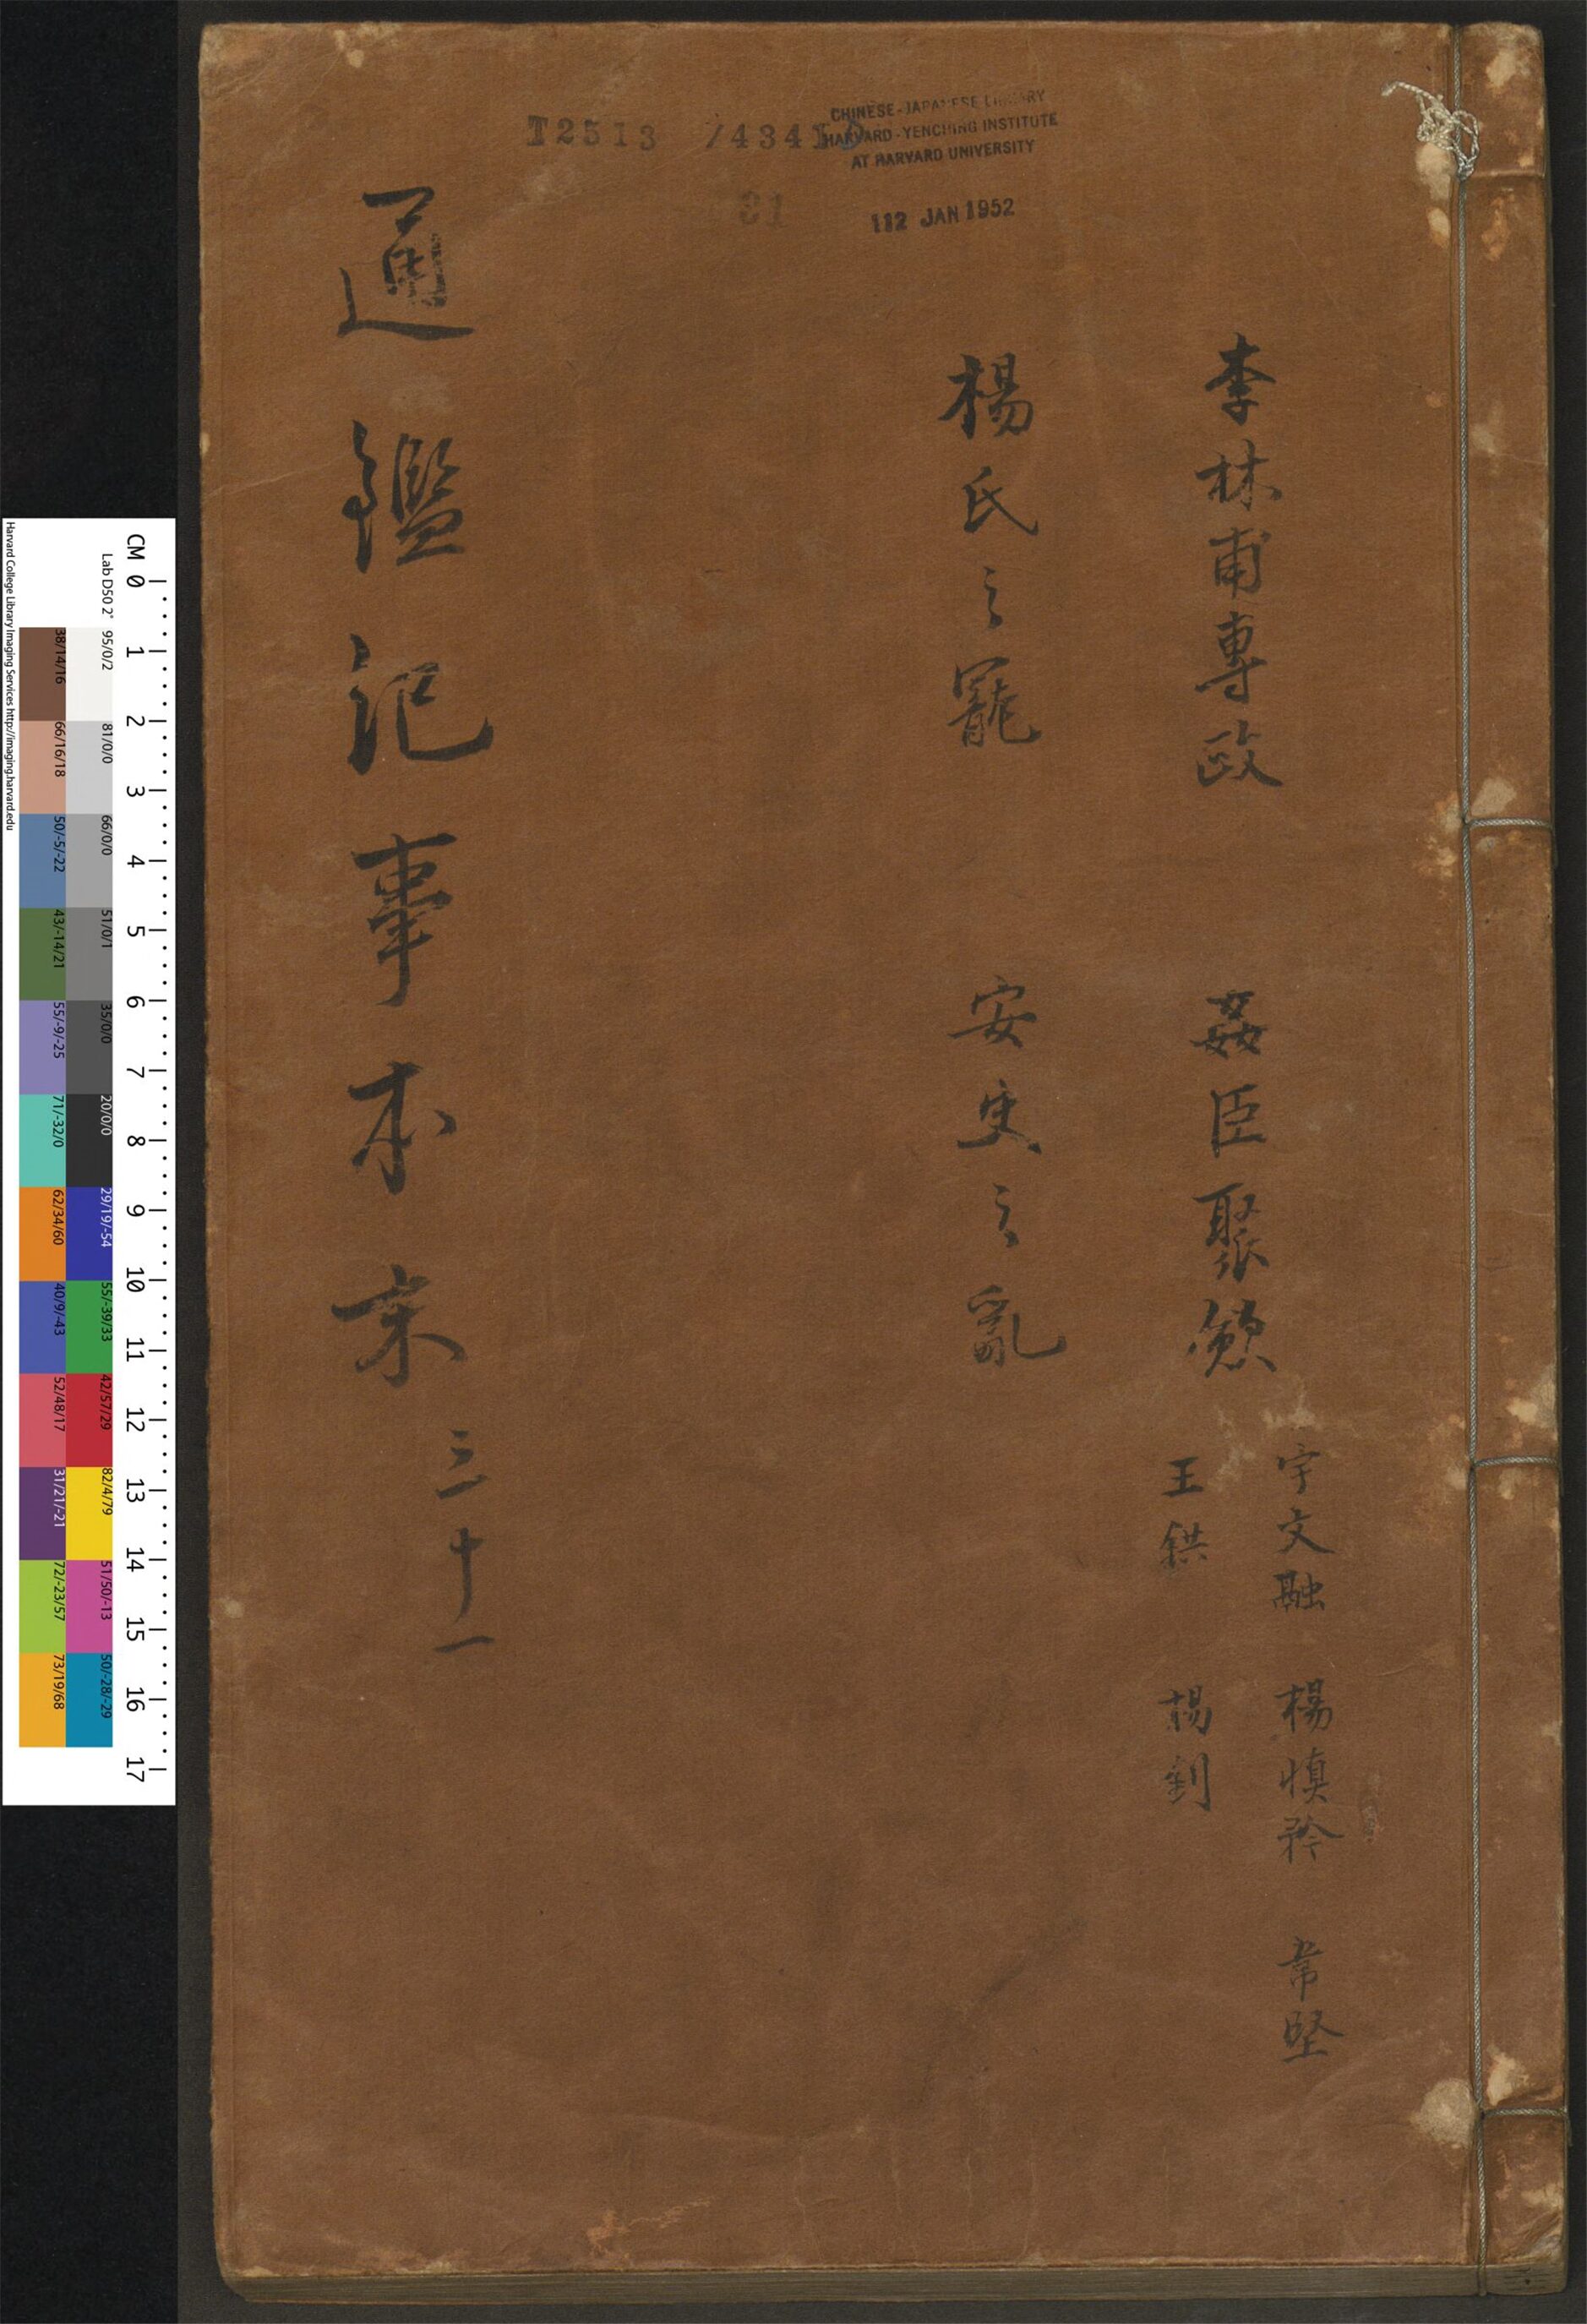 李林甫專政 姦臣聚斂
宇文融 楊慎矜 韋堅
王鉷 楊釗
楊氏之寵 安史之亂
通鑑記事本末 三十一
T2513 /4341D
31
CHINESE-JAPANESE LIBRARY
HARVARD-YENCHING INSTITUTE
AT HARVARD UNIVERSITY
112 JAN 1952
CM 0 1 2 3 4 5 6 7 8 9 10 11 12 13 14 15 16 17
Lab D50 2° 95/0/2 81/0/0 66/0/0 51/0/1 35/0/0 20/0/0 29/19/-54 55/-39/33 42/57/29 82/4/79 51/50/-13 50/-28/-29
38/14/16 66/16/18 50/-5/-22 43/-14/21 55/-9/-25 71/-32/0 62/34/60 40/9/-43 52/48/17 31/21/-21 72/-23/57 73/19/68
Harvard College Library Imaging Services http://imaging.harvard.edu